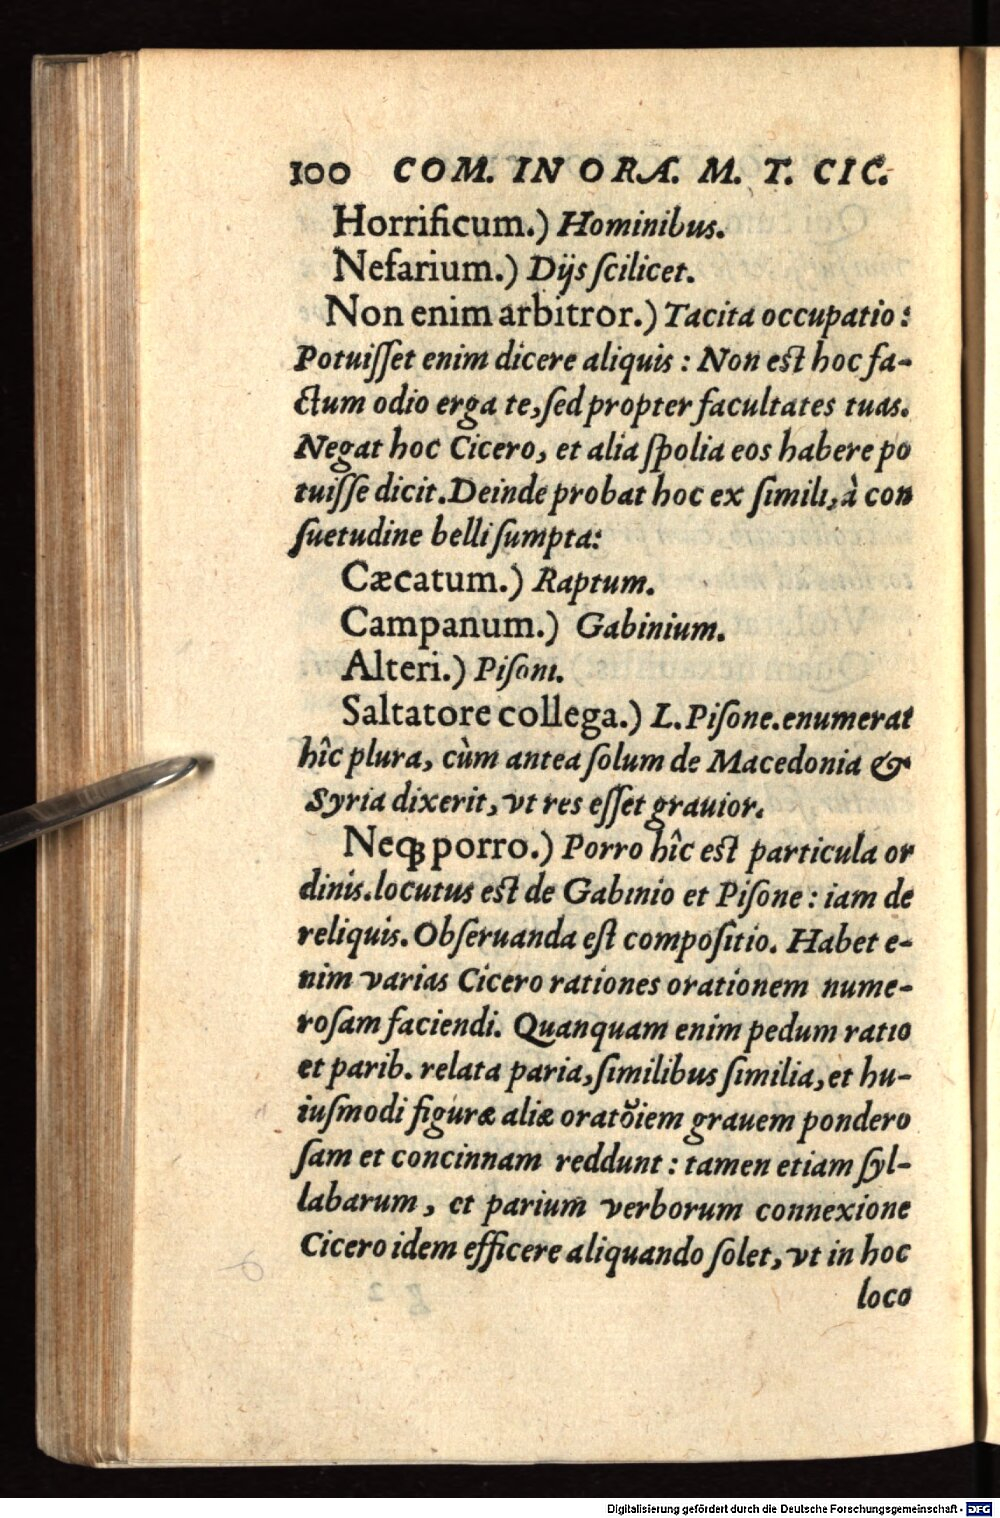 100 COM. IN ORA. M. T. CIC.
Horrificum.) Hominibus.
Nefarium.) Dijs ſcilicet.
Non enim arbitror.) Tacita occupatio:
Potuiſſet enim dicere aliquis : Non est hoc fa-
ctum odio erga te, ſed propter facultates tuas.
Negat hoc Cicero, et alia ſpolia eos habere po
tuiſſe dicit. Deinde probat hoc ex ſimili, à con
ſuetudine belli ſumpta:
Cæcatum.) Raptum.
Campanum.) Gabinium.
Alteri.) Piſoni.
Saltatore collega.) L. Piſone. enumerat
hîc plura, cùm antea ſolum de Macedonia &
Syria dixerit, vt res eſſet grauior.
Neqꝫ porro.) Porro hîc est particula or
dinis. locutus est de Gabinio et Piſone : iam de
reliquis. Obſeruanda eſt compoſitio. Habet e-
nim varias Cicero rationes orationem nume-
roſam faciendi. Quanquam enim pedum ratio
et parib. relata paria, ſimilibus ſimilia, et hu-
iuſmodi figuræ aliæ oratõiem grauem pondero
ſam et concinnam reddunt : tamen etiam ſyl-
labarum, et parium verborum connexione
Cicero idem efficere aliquando ſolet, vt in hoc
loco
Digitalisierung gefördert durch die Deutsche Forschungsgemeinschaft - DFG